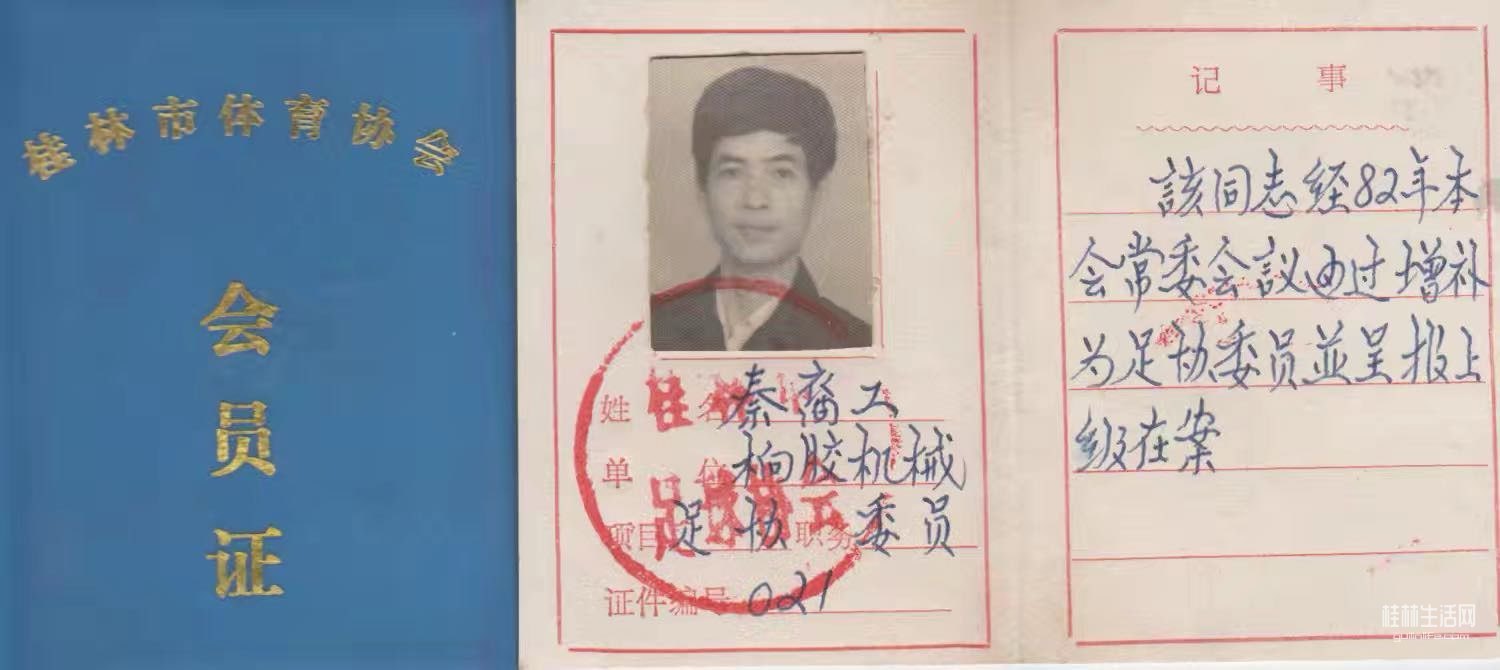 桂林市体育协会
会员证
姓名 秦裔工
单位 橡胶机械
项目 足协 职务 委员
证件编号 021
记事
該同志经82年本
会常委会议通过增补
为足协委员並呈报上
级在案
桂林生活网